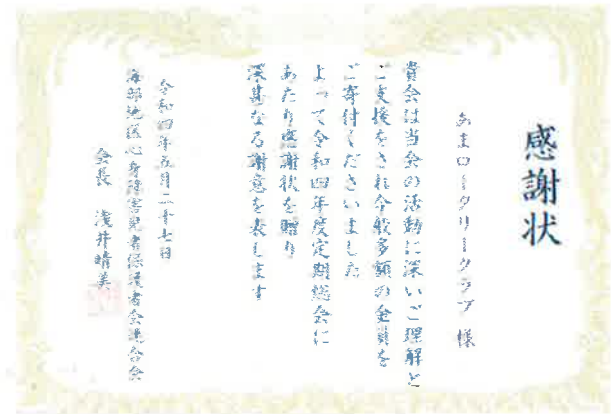 感謝状
あまロータリークラブ 様
貴会は当会の活動に深いご理解と
ご支援をされ今般多額の金員を
ご寄付くださいました
よって令和四年度定期総会に
あたり感謝状を贈り
深甚なる謝意を表します
令和四年五月二十七日
海部地区心身障害児者保護者会連合会
会長 浅井晴美